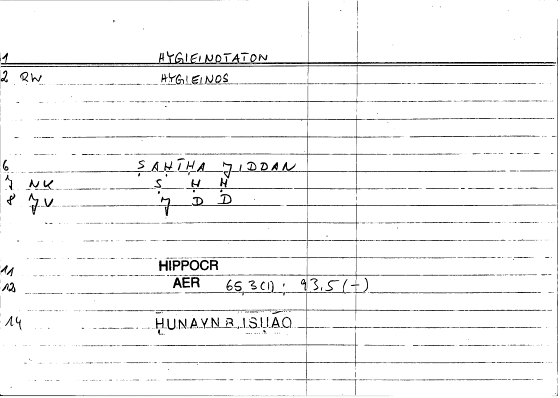 1 HYGIEINOTATON
2 RW HYGIEINOS
6 ṢAḤĪḤA JIDDAN
7 NK Ṣ Ḥ Ḥ
8 JV J D D
11 HIPPOCR
12 AER 65,3(1) ; 93,5(-)
14 ḤUNAYN B. ISḤĀQ